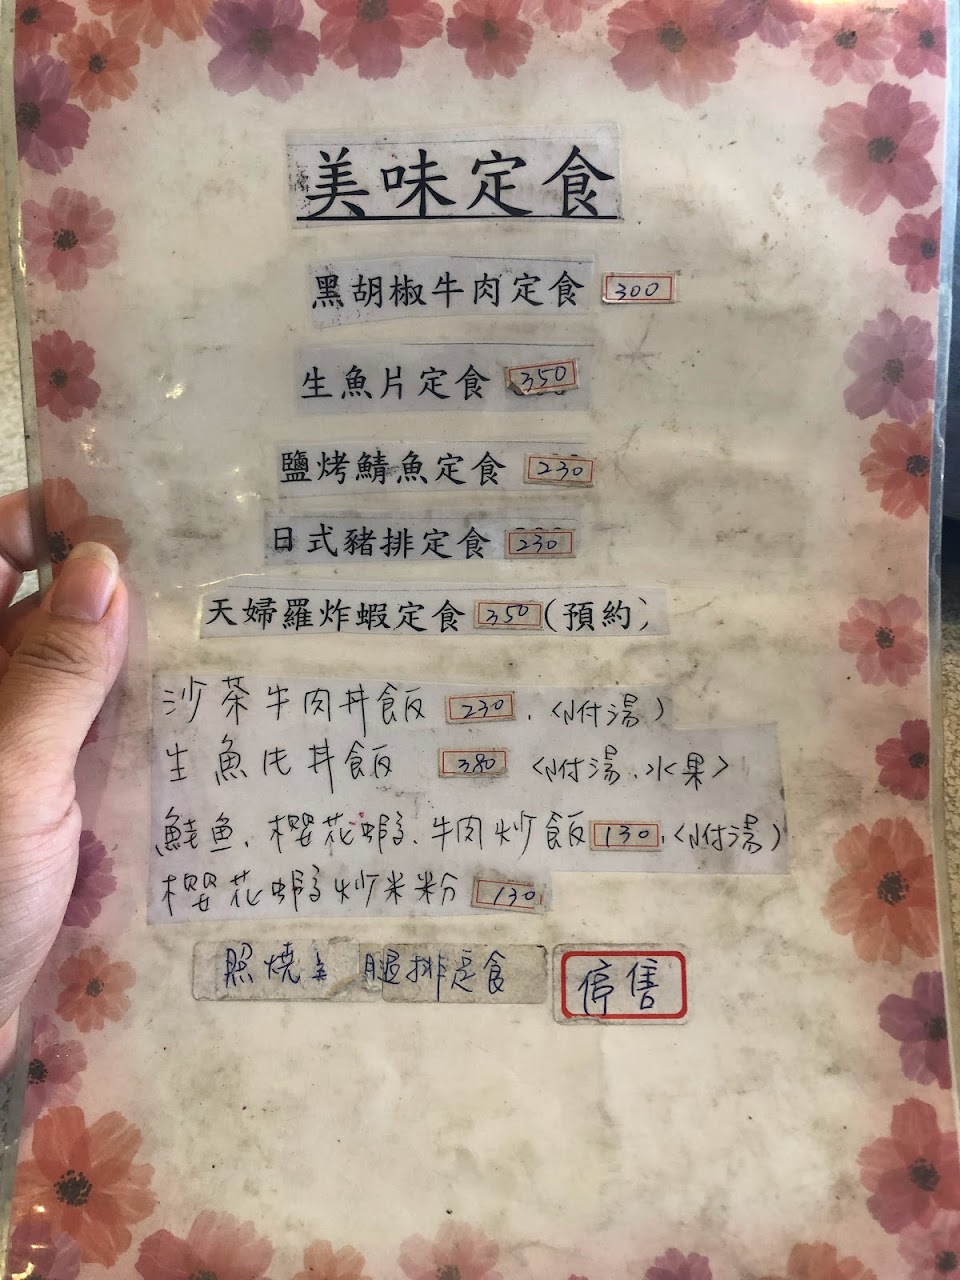 美味定食
黑胡椒牛肉定食 300
生魚片定食 350
鹽烤鯖魚定食 230
日式豬排定食 230
天婦羅炸蝦定食 350 (預約)
沙茶牛肉丼飯 230. (附湯)
生魚片丼飯 380 (附湯.水果)
鮭魚.櫻花蝦.牛肉炒飯 130.(附湯)
櫻花蝦炒米粉 130
照燒 腿排定食 停售